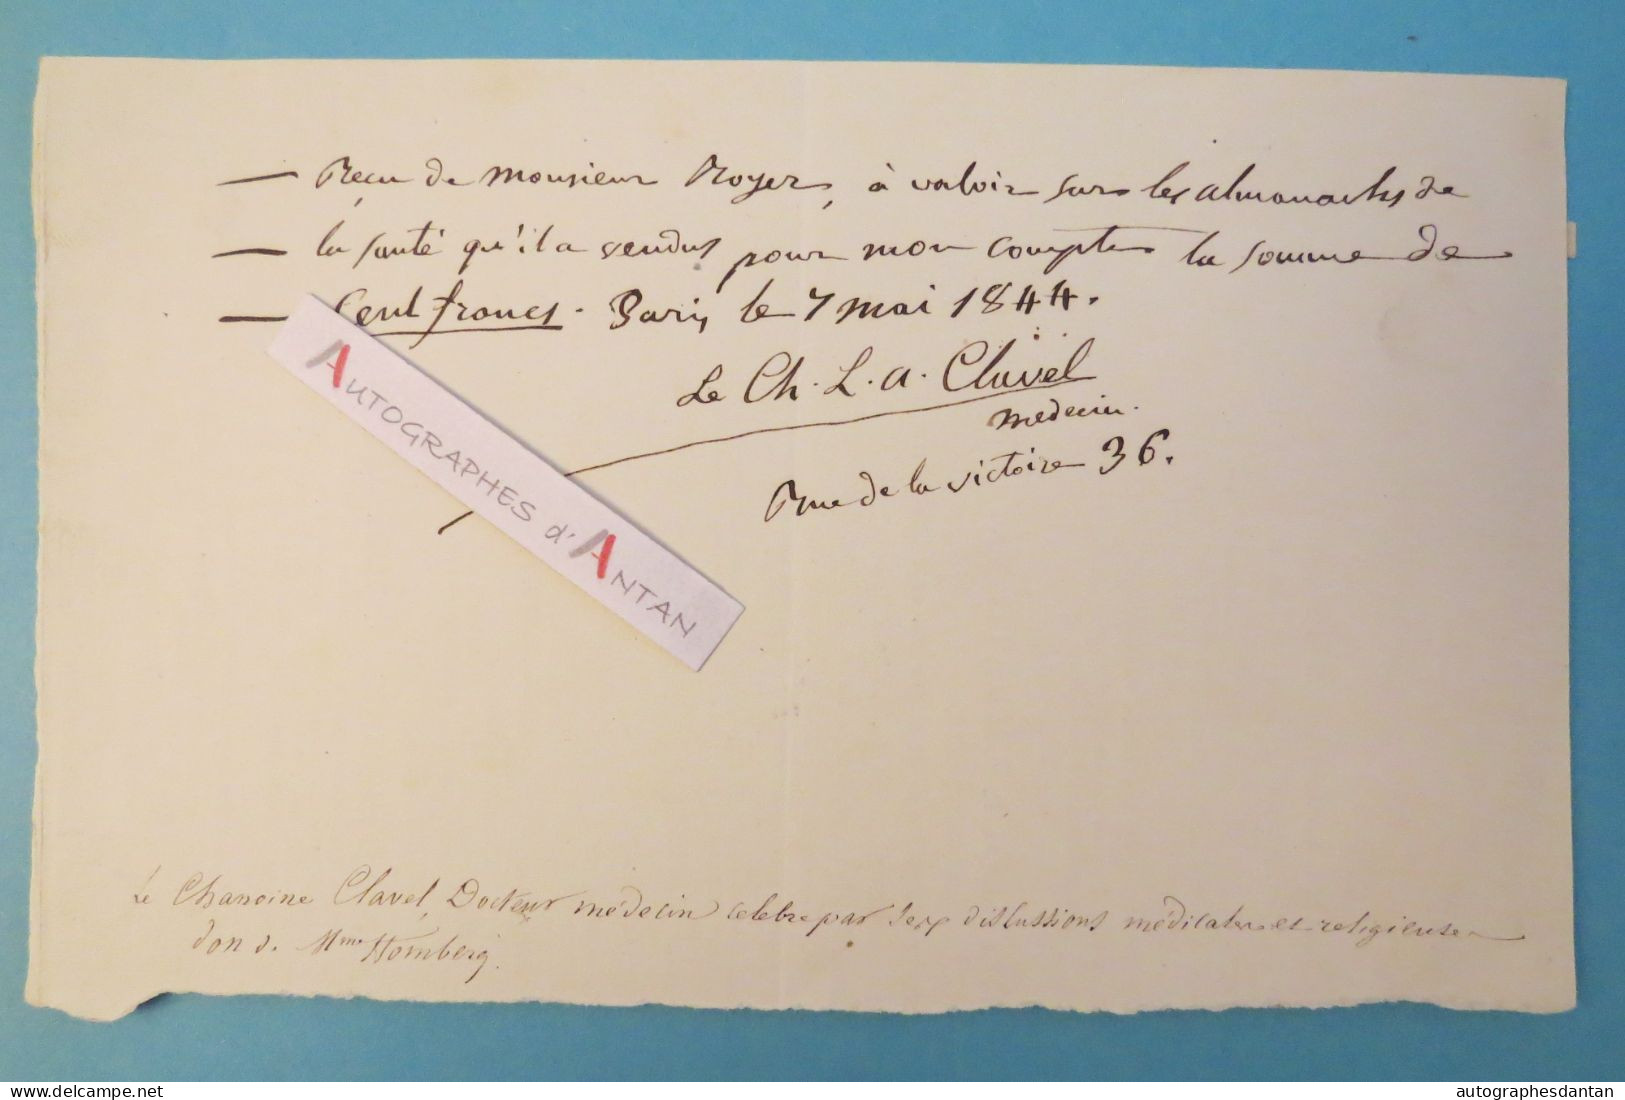 — Reçu de monsieur Royer, à valoir sur les almanachs de
— la santé qu'il a vendus pour mon compte la somme de
— Cent francs. Paris, le 7 mai 1844.
Le Ch. L. A. Clavel
medecin.
Rue de la victoire 36.
AUTOGRAPHES d'ANTAN
Le Chanoine Clavel, Docteur médecin celebre par ses discussions médicales et religieuses
don d. Mme Homberg.
delcampe.net
autographesdantan